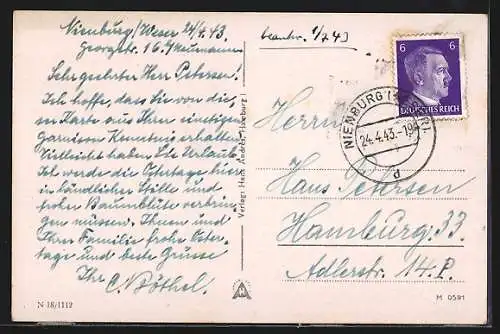 Nienburg/Weser 24/4.43
Georgstr. 16 b/Neumann
Sehr geehrter Herr Petersen!
Ich hoffe, dass Sie von die-
ser Karte aus Ihrer einstigen
Garnison Kenntnis erhalten.
Vielleicht haben Sie Urlaub.
Ich werde die Ostertage hier
in ländlicher Stille und
froher Baumblüte verbrin-
gen müssen. Ihnen und
Ihrer Familie frohe Oster-
tage und beste Grüsse
Ihr C. Böthel.
N 18/1112
Verlag: Hans Andres, Nienburg
beantw. 1/7 43
6 6
DEUTSCHES REICH
NIENBURG (WESER)
24.4.43.-19
d
Hans Petersen
Hamburg 33
Adlerstr. 14.P.
M 0591